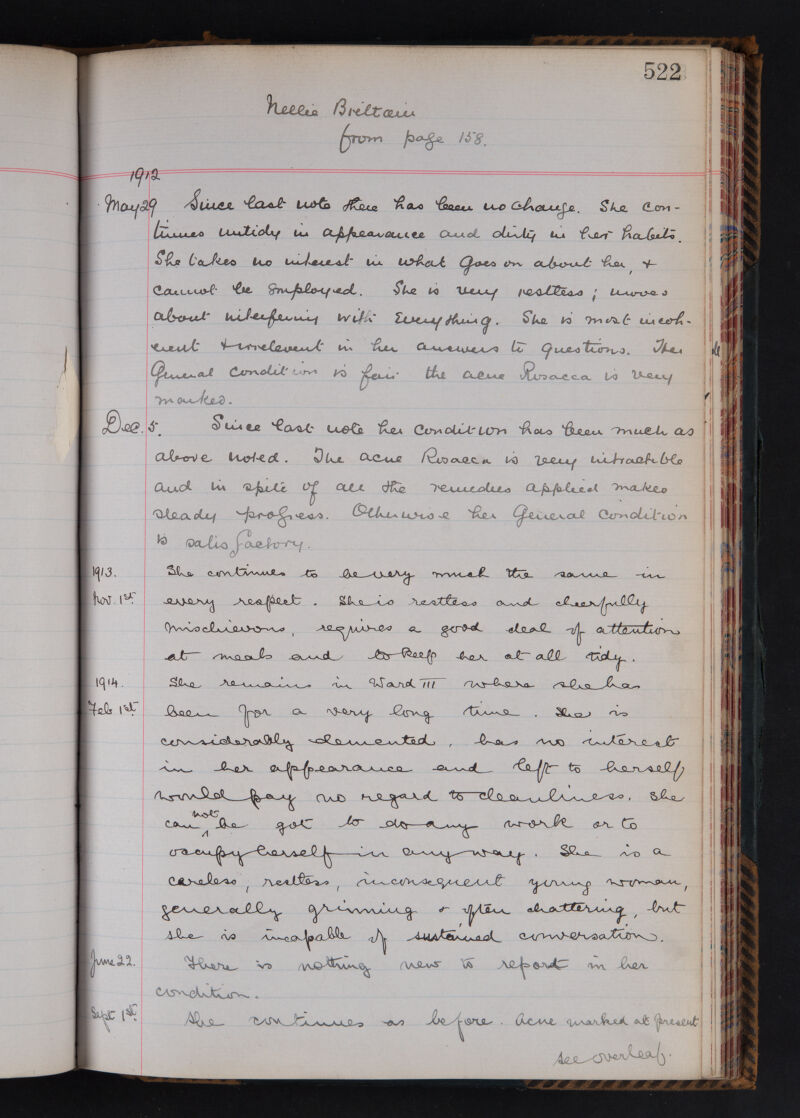 522
Nellie Brittain
from page 158.
1912
May 29 Since last note there has been no change. She con-
tinues untidy in appearance and dirty in her habits.
She takes no interest in what goes on about her, +
cannot be employed. She is very restless; moves
about interfering with everything. She is most incoh-
erent + irrelevent in her answers to questions. Her
General condition is fair the acne Rosacea is very
marked.
Dec. 5. Since last note her condition has been much as
above noted. The acne Rosacea is very intractible
and in spite of all the remedies applied makes
steady progress. Otherwise her General Condition
is satisfactory.
1913. She continues to be very much the same in
Nov. 1st every respect. She is restless and cheerfully
mischievous, requires a good deal of attention
at meals and to keep her at all tidy.
1914. She remains in Ward III where she has
Feb 1st been for a very long time. She is
considerably demented, has no interest
in her appearance and left to herself
would pay no regard to cleanliness. She
can not be got to do any work or to
occupy herself in any way. She is a
careless, restless, inconsequent young woman,
generally grinning + often chattering, but
she is incapable of sustained conversation.
June 22. There is nothing new to report in her
condition.
Sept 1st She continues as before. Acne marked at present
see overleaf.